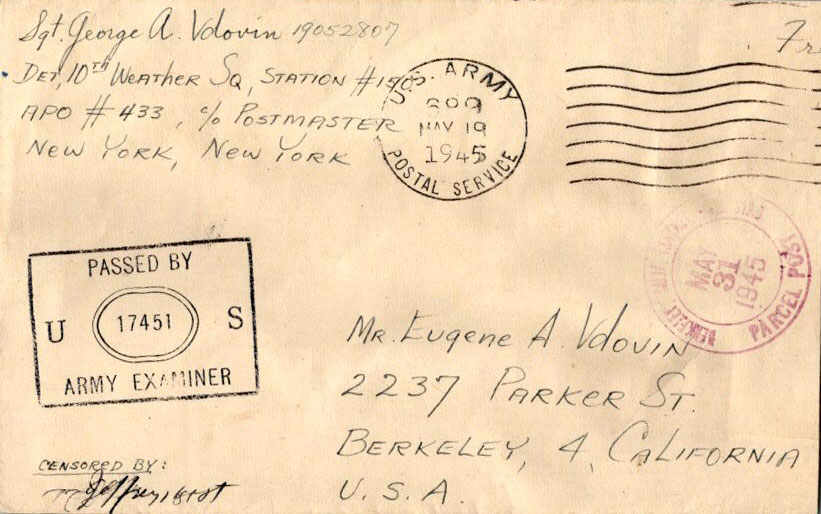 Sgt. George A. Vdovin 19052807
Det, 10th Weather Sq, Station #15
APO # 433, c/o Postmaster
New York, New York
U.S. ARMY
MAY 19
1945
POSTAL SERVICE
MAY
31
1945
BERKELEY
PARCEL POST
PASSED BY
U 17451 S
ARMY EXAMINER
Mr. Eugene A. Vdovin
2237 Parker St.
Berkeley, 4, California
U.S.A.
CENSORED BY: